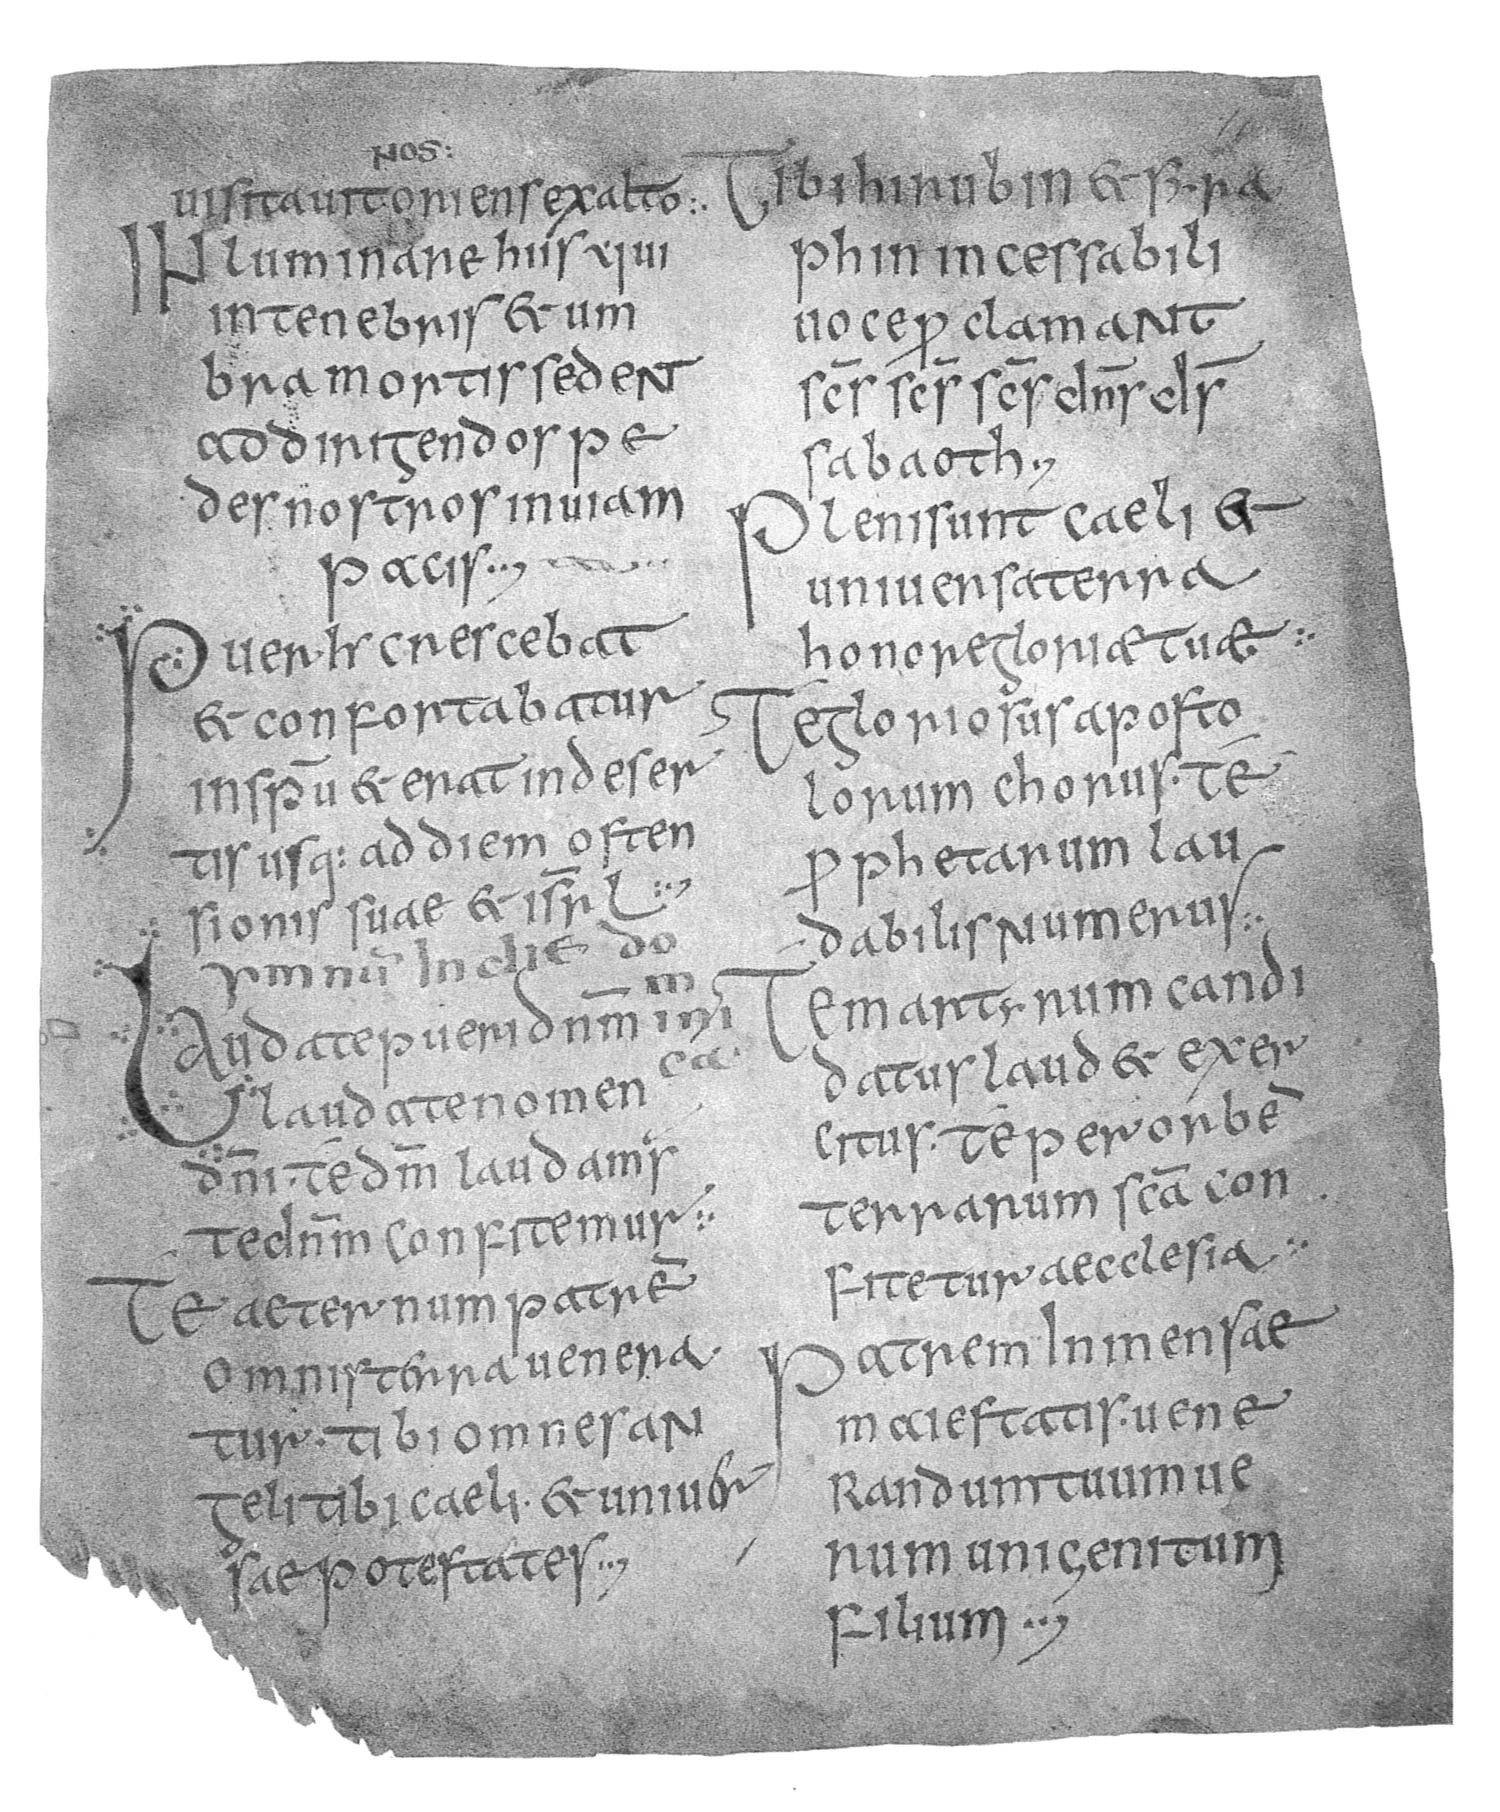 nos:
uisitauit oriens exalto:.
INluminare hiis qui
in tenebris & um
bra mortis sedent
ad dirigendos pe
des nostros in uiam
pacis..,
Puer ih̄s crescebat
& confortabatur
in sp̄u & erat in deser
tis usq: ad diem osten
sionis suae & isr̄l:.,
ymnū In die do
mini
ca
Laudate pueri dn̄m
laudate nomen
dn̄i. té dm̄ laudamꝰs
te dn̄m confitemur:.
Te aeternum patrē
omnis terra uenera
tur. tibi omnes an
geli tibi caeli. & uniuer
sae potestates..,
Tibi hirubin & syra
phin incessabili
uoce ꝓclamant
sc̄s sc̄s sc̄s dn̄s ds̄
sabaoth.,
Pleni sunt caeli &
uniuersa terra
honore gloriae tuae:.
Te gloriosus aposto
lorum chorus. té
ꝓphetarum lau
dabilis numerus:.
Te martyrum candi
datus laud& exer
citus. té per orbē
terrarum scā con
fitetur aecclesia:.
Patrem Inmensae
maiestatis. uene
randum tuum ue
rum unigenitum
filium..,